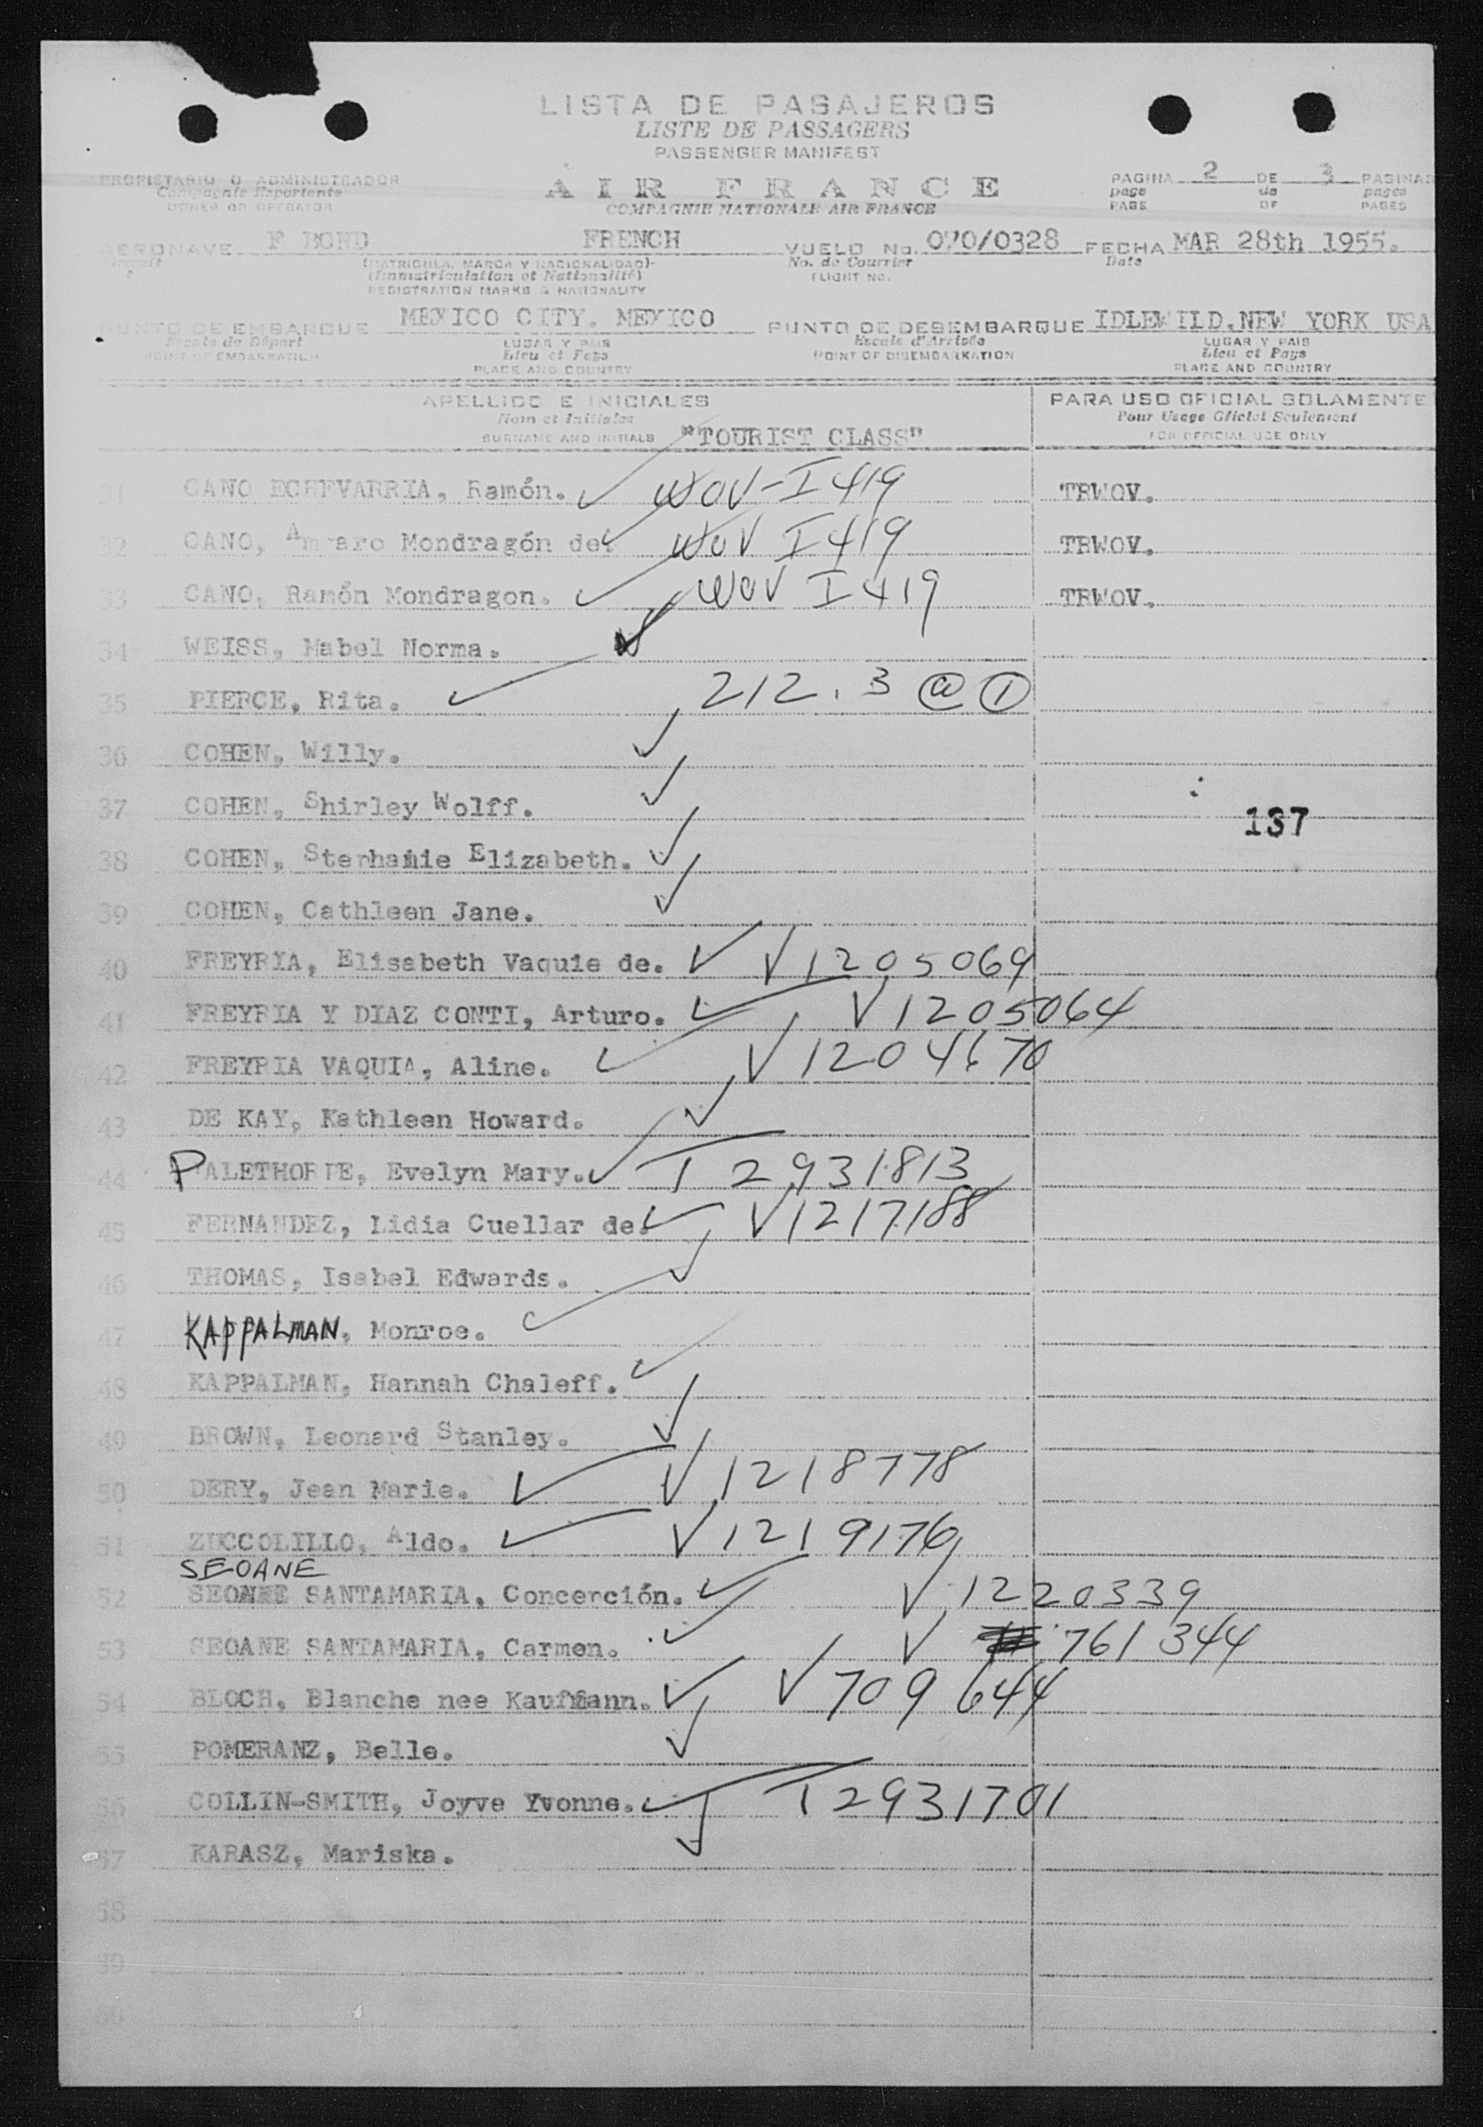 LISTA DE PASAJEROS
LISTE DE PASSAGERS
PASSENGER MANIFEST
PROPIETARIO O ADMINISTRADOR
Compagnie Exportante
OWNER OR OPERATOR
AIR FRANCE
COMPAGNIE NATIONALE AIR FRANCE
PAGINA 2 DE 3 PAGINAS
page de pages
PAGE OF PAGES
AERONAVE F BOHD FRENCH VUELO No. 070/0328 FECHA MAR 28th 1955.
(MATRICULA, MARCA Y NACIONALIDAD) No. de Courrier Date
(Immatriculation et Nationalité) FLIGHT NO.
REGISTRATION MARKS & NATIONALITY
PUNTO DE EMBARQUE MEXICO CITY. MEXICO PUNTO DE DESEMBARQUE IDLEWILD,NEW YORK USA
Escale de Départ LUGAR Y PAIS Escale d'Arrivée LUGAR Y PAIS
POINT OF EMBARKATION Lieu et Pays POINT OF DISEMBARKATION Lieu et Pays
PLACE AND COUNTRY PLACE AND COUNTRY
APELLIDO E INICIALES PARA USO OFICIAL SOLAMENTE
Nom et Initiales Pour Usage Officiel Seulement
SURNAME AND INITIALS "TOURIST CLASS" FOR OFFICIAL USE ONLY
31 CANO ECHEVARRIA, Ramón. ✓ WOV-I 419 TRWOV.
32 CANO, Amparo Mondragón de. ✓ WOV I 419 TRWOV.
33 CANO, Ramón Mondragon. ✓ WOV I 419 TRWOV.
34 WEISS, Mabel Norma. ✓
35 PIERCE, Rita. ✓ 212.3 @ 1
36 COHEN, Willy. ✓
37 COHEN, Shirley Wolff. ✓
137
38 COHEN, Stephanie Elizabeth. ✓
39 COHEN, Cathleen Jane. ✓
40 FREYRIA, Elisabeth Vaquie de. ✓ V 1205069
41 FREYRIA Y DIAZ CONTI, Arturo. ✓ V 1205064
42 FREYRIA VAQUIA, Aline. ✓ V 1204670
43 DE KAY, Kathleen Howard. ✓
44 PALETHORPE, Evelyn Mary. ✓ T 2931813
45 FERNANDEZ, Lidia Cuellar de. ✓ V 1217188
46 THOMAS, Isabel Edwards. ✓
47 KAPPALMAN, Monroe. ✓
48 KAPPALMAN, Hannah Chaleff. ✓
49 BROWN, Leonard Stanley. ✓
50 DERY, Jean Marie. ✓ V 1218778
51 ZUCCOLILLO, Aldo. ✓ V 1219176
SEOANE
52 SEOANE SANTAMARIA, Concepción. ✓ V 1220339
53 SEOANE SANTAMARIA, Carmen. ✓ V 761344
54 BLOCH, Blanche nee Kaufmann. ✓ V 709644
55 POMERANZ, Belle. ✓
56 COLLIN-SMITH, Joyve Yvonne. ✓ T 2931701
57 KARASZ, Mariska. ✓
58
59
60